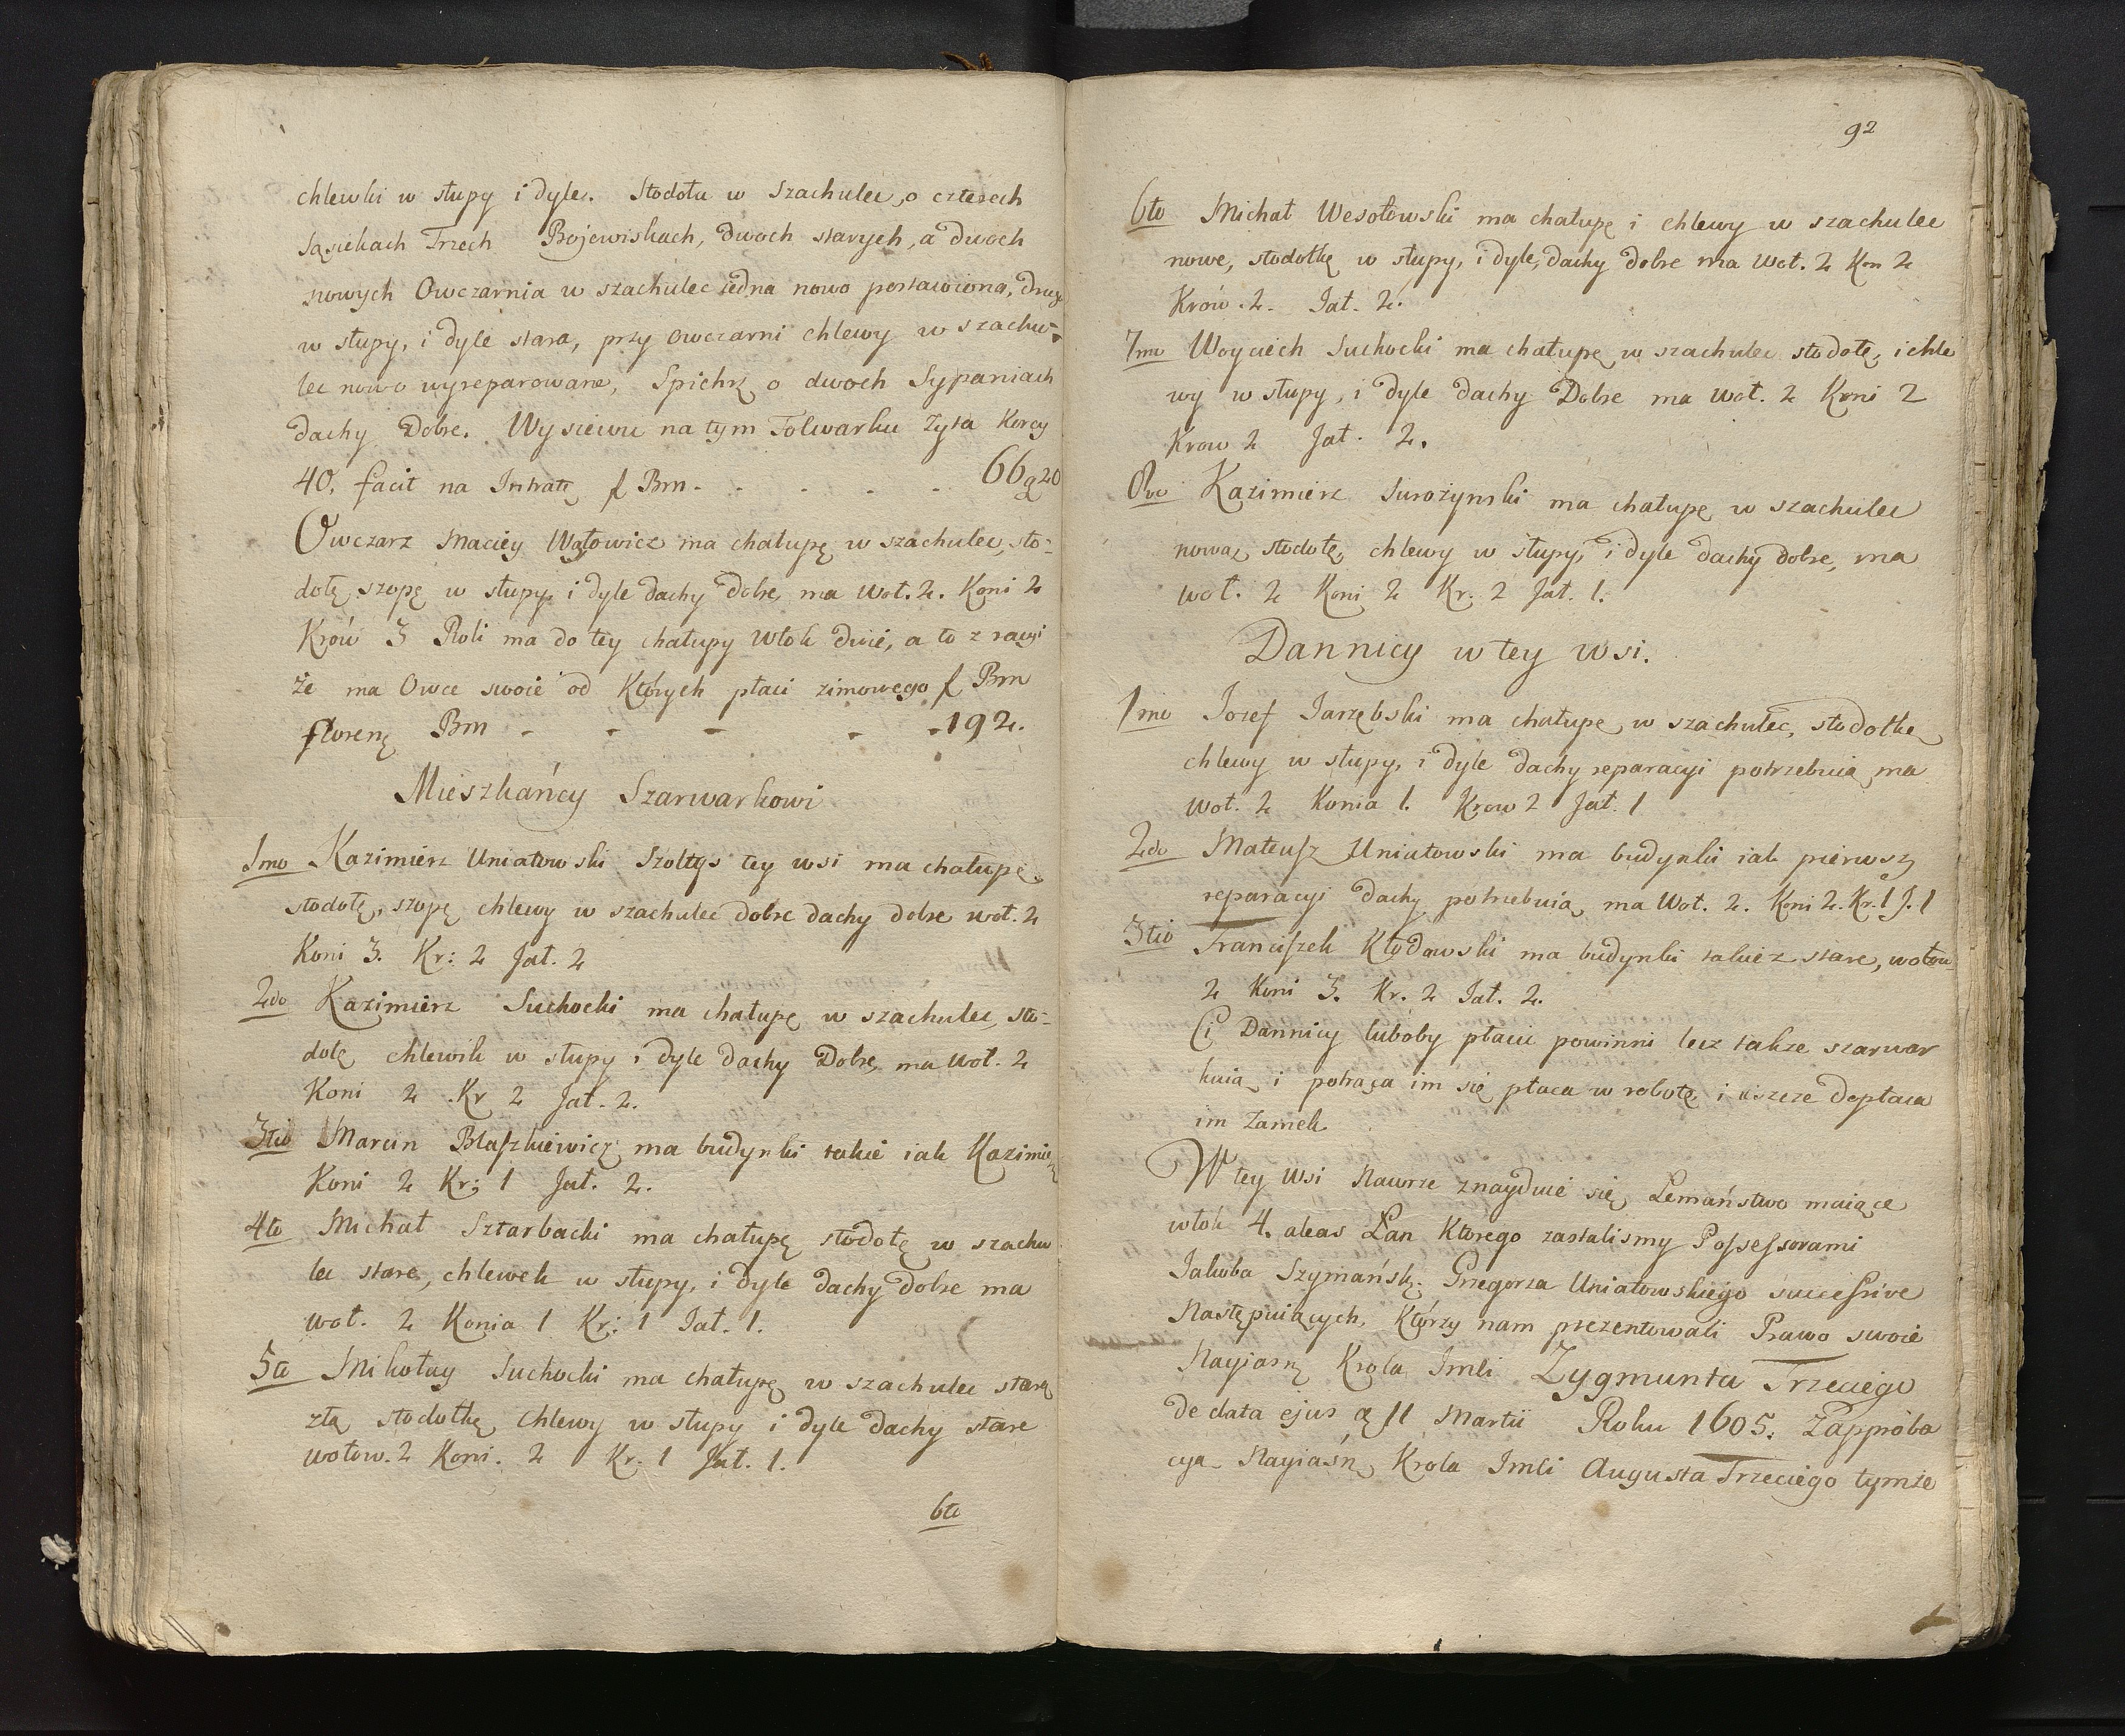 chlewki w słupy i dyle. Stodoła w Szachulec, o czterech
sąsiekach Trzech Bojewiskach, dwoch starych, a dwoch
nowych Owczarnia w szachulec iedna nowo postawiona, druga
w słupy, i dyle stara, przy owczarni chlewy w szachu-
lec nowo wyreparowane, Spichrz o dwoch Sypaniach
dachy Dobre. Wysiewu na tym Folwarku Zyta Korcy
40. facit na Intratę f Brn - - - - - 66 g 20
Owczarz Maciey Wątowicz ma chałupę w szachulec, sto-
dołę szopę w słupy i dyle dachy dobre, ma woł. 2. Koni 2
Krów 3 Roli ma do tey chałupy Włok dwie, a to z racyi
że ma Owce swoie od Których płaci zimowego f Brn
florenę Brn - - - - - 192.
Mieszkańcy Szarwarkowi
1mo Kazimierz Uniatowski Szołtys tey wsi ma chałupę
stodołę, szopę chlewy w szachulec dobre dachy dobre woł. 2
Koni 3. Kr: 2 Jał. 2
2do Kazimierz Suchocki ma chałupę w szachulec, sto-
dołę chlewik w słupy i dyle dachy Dobre, ma woł. 2
Koni 2 Kr 2 Jał. 2.
3tio Marcin Błaszkiewicz ma budynki takie iak Kazimierz
Koni 2 Kr; 1 Jał. 2.
4to Michał Sztarbacki ma chałupę stodołę w szachu
lec stare, chlewek w słupy, i dyle dachy dobre ma
woł. 2 Konia 1 Kr: 1 Jał. 1.
5to Mikołay Suchocki ma chałupę w szachulec starą
złą stodołkę chlewy w słupy i dyle dachy stare
wołow. 2 Koni. 2 Kr. 1 Jał. 1.
6to
92
6to Michał Wesołowski ma chałupę i chlewy w szachulec
nowe, stodołkę w słupy, i dyle, dachy dobre ma woł. 2 Kon 2
Krów. 2. Jał. 2.
7mo Woyciech Suchocki ma chałupę w szachulec stodołę, i chle
wy w słupy, i dyle dachy Dobre ma woł. 2 Koni 2
Krow 2 Jał. 2.
8vo Kazimierz Surożynski ma chałupę w szachulec
nową stodołę, chlewy w słupy, i dyle dachy dobre, ma
woł. 2 Koni 2 Kr. 2 Jał. 1.
Dannicy w tey Wsi.
1mo Jozef Jarzębski ma chałupę w szachulec, stodołkę
chlewy w słupy, i dyle dachy reparacyi potrzebuią ma
woł. 2 Konia 1. Krow 2 Jał. 1
2do Mateusz Uniatowski ma budynki iak pierwszy
reparacyi dachy potrzebuią, ma Woł. 2. Koni 2. Kr. 1 J. 1
3tio Franciszek Kłodawski ma budynki takież stare, wołow
2 Koni 3. Kr. 2 Jał. 2.
Ci Dannicy luboby płacić powinni lecz także szarwar
kuią i potrąca im się płaca w robotę, i ieszcze dopłaca
im Zamek
W tey Wsi Nawrze znayduie się Lemaństwo maiące
włok 4. aleas Łan Ktorego zastalismy Possessorami
Jakuba Szymańsk. Grzegorza Uniatowskiego successive
Następuiących. Którzy nam prezentowali Prawo swoie
Nayiasnę Krola Imći Zygmunta Trzeciego
de data ejus ą 11 Martii Roku 1605. Z approba
cya Nayiaśn Krola Imći Augusta Trzeciego tymże